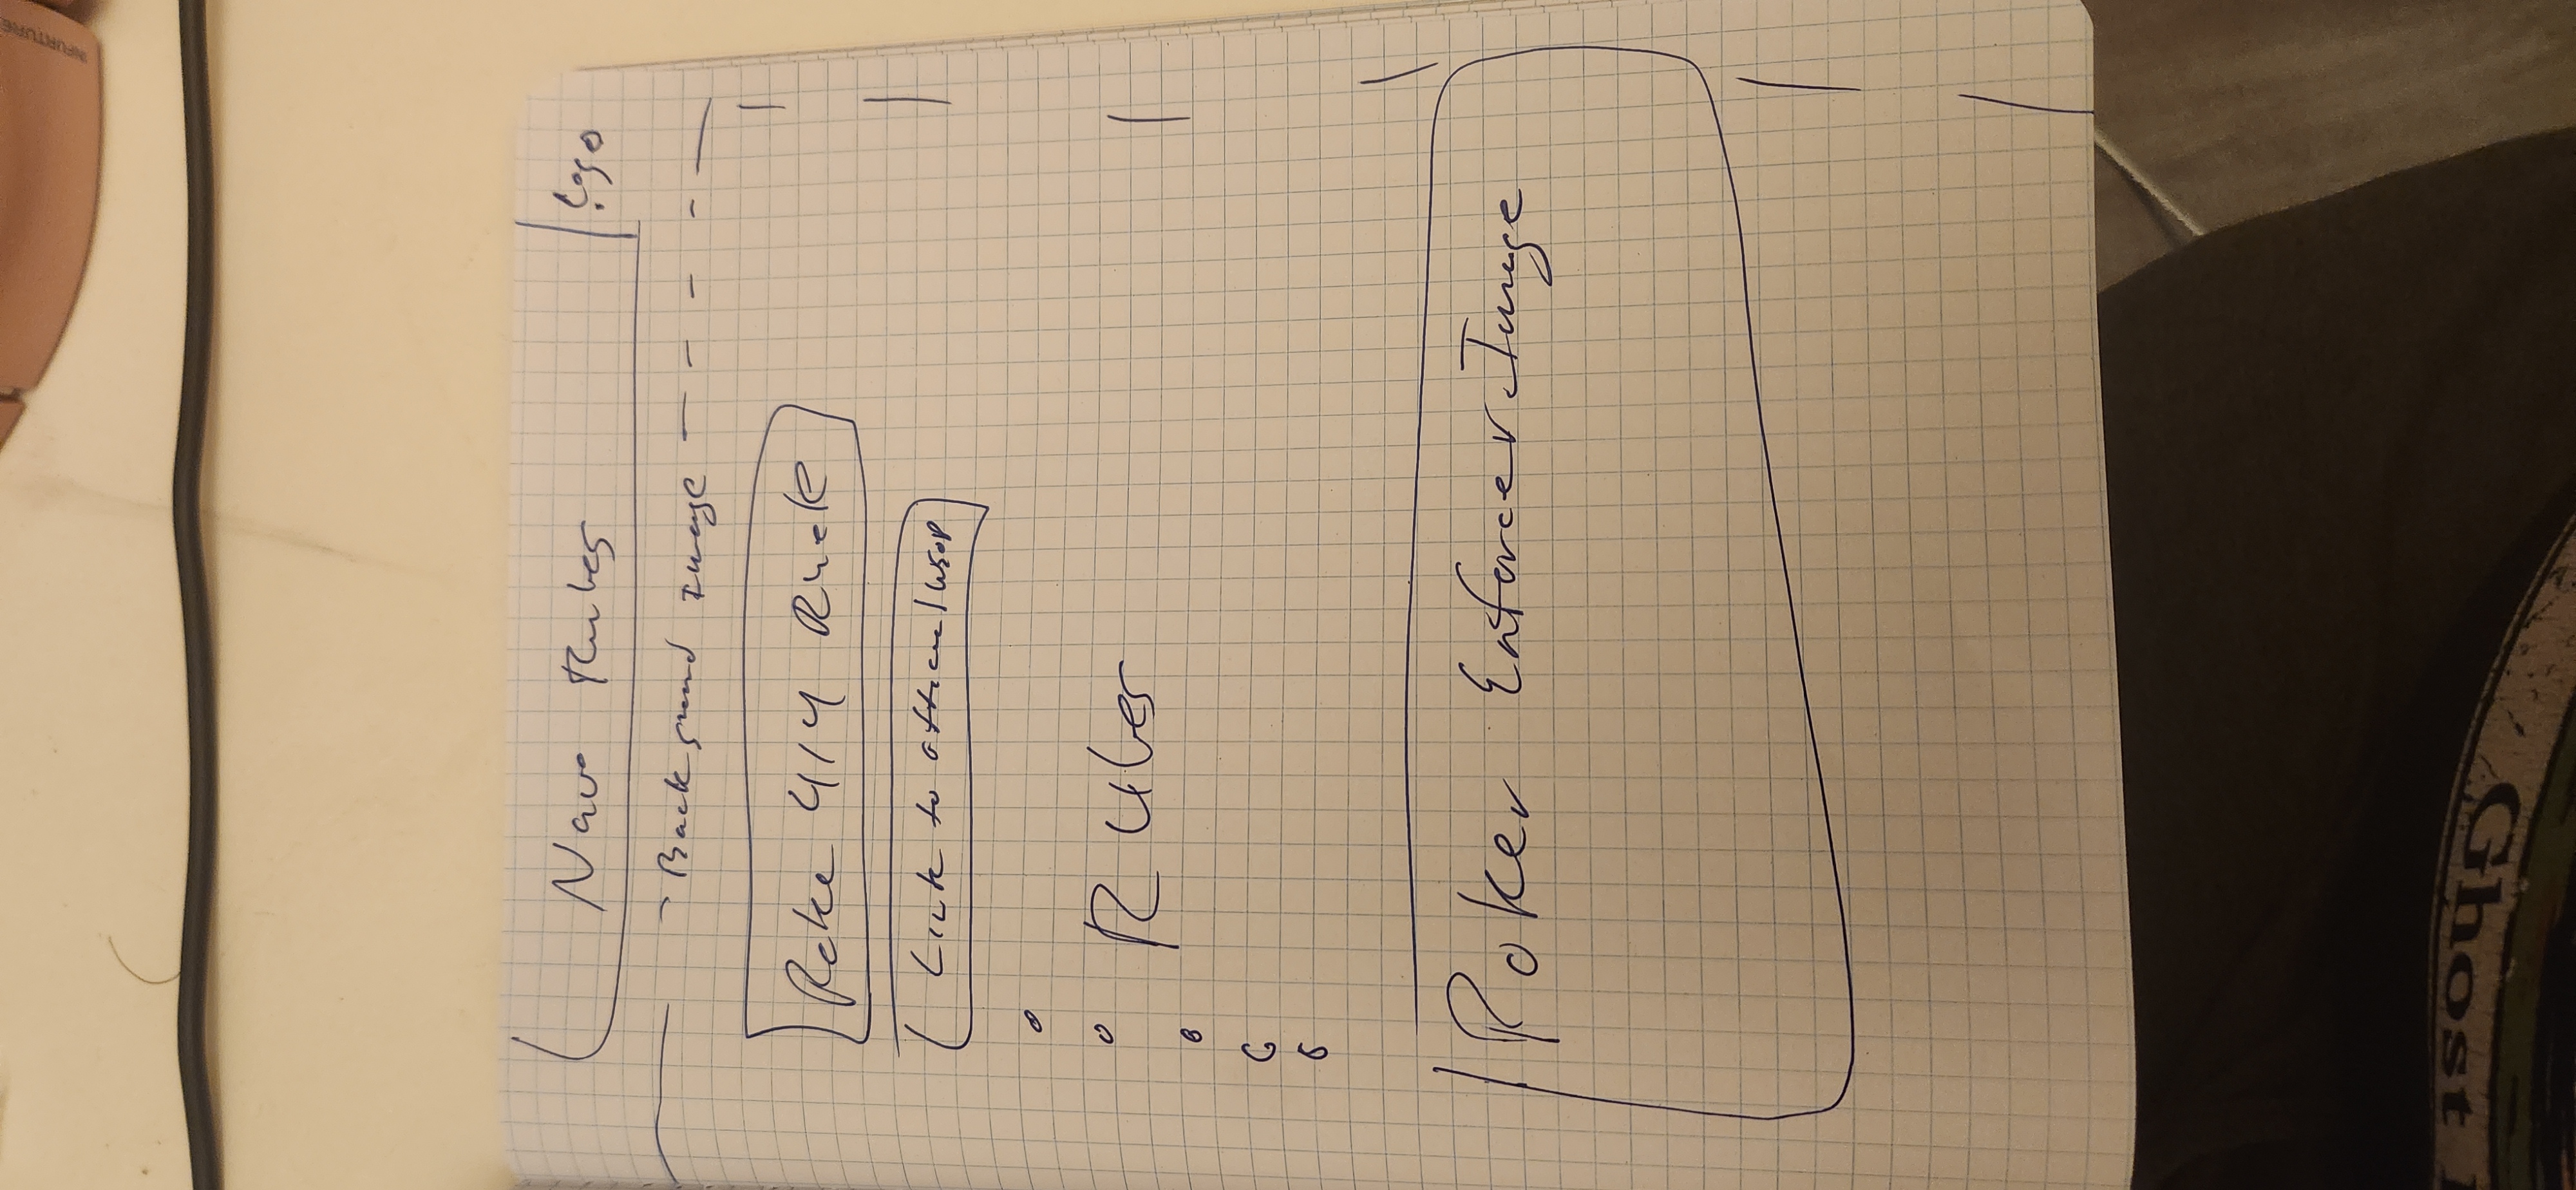 INFURTURE
Nav Rules
Logo
Background Image
Poke 414 Rule
Link to official WSOP
Rules
Poker Enforcer Image
Ghost